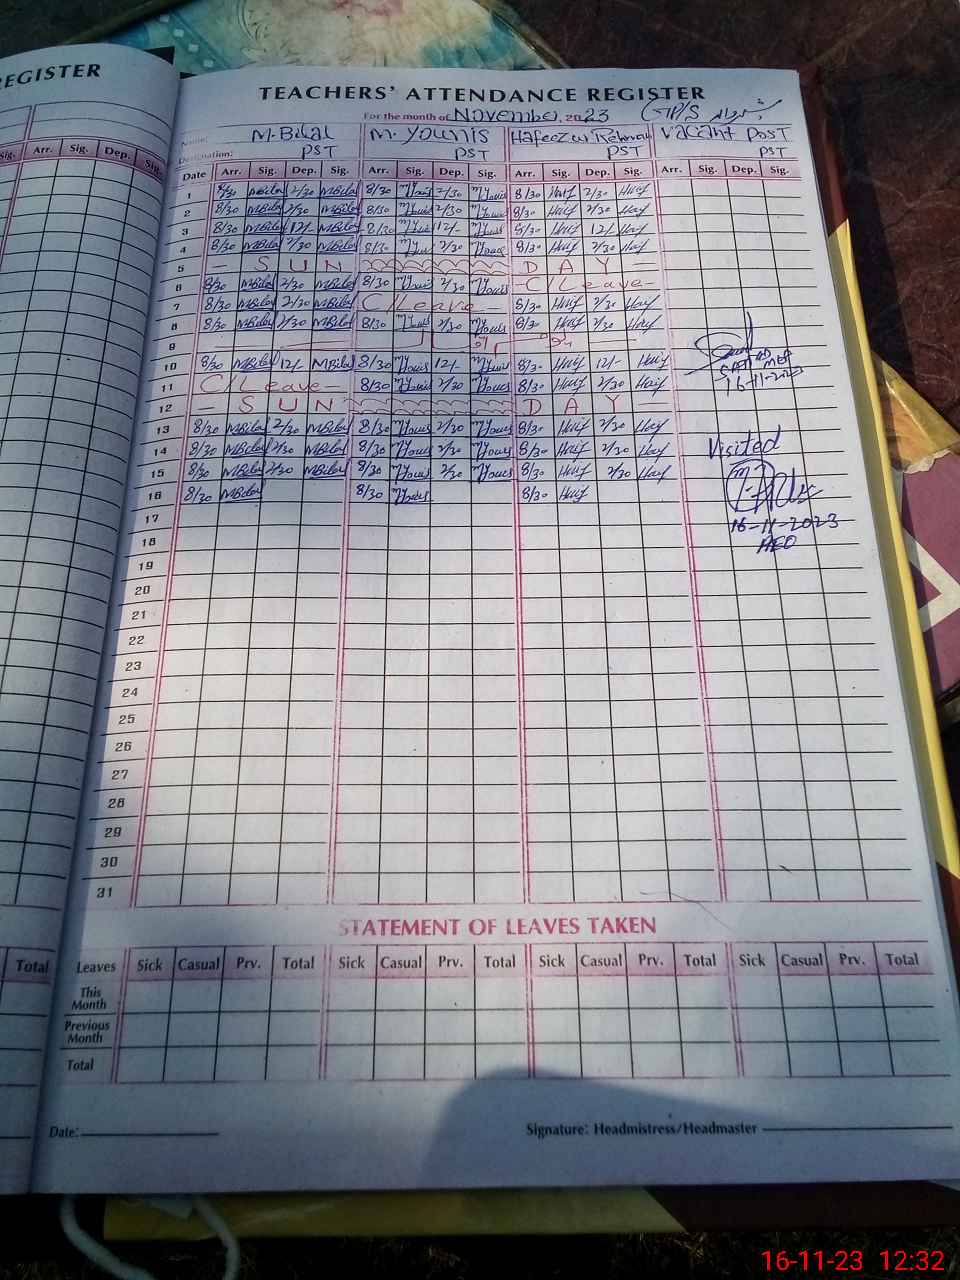 REGISTER
TEACHERS' ATTENDANCE REGISTER
For the month of November, 2023 GP/S
Name: M.Bilal M. Younis Hafeez ur Rehman Vacant Post
Designation: PST PST PST PST
Sig. Arr. Sig. Dep. Sig. Date Arr. Sig. Dep. Sig. Arr. Sig. Dep. Sig. Arr. Sig. Dep. Sig. Arr. Sig. Dep. Sig.
1 8/30 MBilal 2/30 MBilal 8/30 MYounis 2/30 MYounis 8/30 Haif 2/30 Haif
2 8/30 MBilal 2/30 MBilal 8/30 MYounis 2/30 MYounis 8/30 Haif 2/30 Haif
3 8/30 MBilal 12/- MBilal 8/30 MYounis 12/- MYounis 8/30 Haif 12/- Haif
4 8/30 MBilal 2/30 MBilal 8/30 MYounis 2/30 MYounis 8/30 Haif 2/30 Haif
5 - S U N D A Y -
6 8/30 MBilal 2/30 MBilal 8/30 MYounis 2/30 MYounis - C/Leave -
7 8/30 MBilal 2/30 MBilal C/Leave - 8/30 Haif 2/30 Haif
8 8/30 MBilal 2/30 MBilal 8/30 MYounis 2/30 MYounis 8/30 Haif 2/30 Haif
9
10 8/30 MBilal 12/- MBilal 8/30 MYounis 12/- MYounis 8/30 Haif 12/- Haif
11 C/Leave - 8/30 MYounis 2/30 MYounis 8/30 Haif 2/30 Haif
16-11-2023
12 - S U N D A Y -
13 8/30 MBilal 2/30 MBilal 8/30 MYounis 2/30 MYounis 8/30 Haif 2/30 Haif
14 8/30 MBilal 2/30 MBilal 8/30 MYounis 2/30 MYounis 8/30 Haif 2/30 Haif
Visited
15 8/30 MBilal 2/30 MBilal 8/30 MYounis 2/30 MYounis 8/30 Haif 2/30 Haif
16 8/30 MBilal 8/30 MYounis 8/30 Haif
17
16-11-2023
18
AEO
19
20
21
22
23
24
25
26
27
28
29
30
31
STATEMENT OF LEAVES TAKEN
Total Leaves Sick Casual Prv. Total Sick Casual Prv. Total Sick Casual Prv. Total Sick Casual Prv. Total
This Month
Previous Month
Total
Date: Signature: Headmistress/Headmaster
16-11-23 12:32